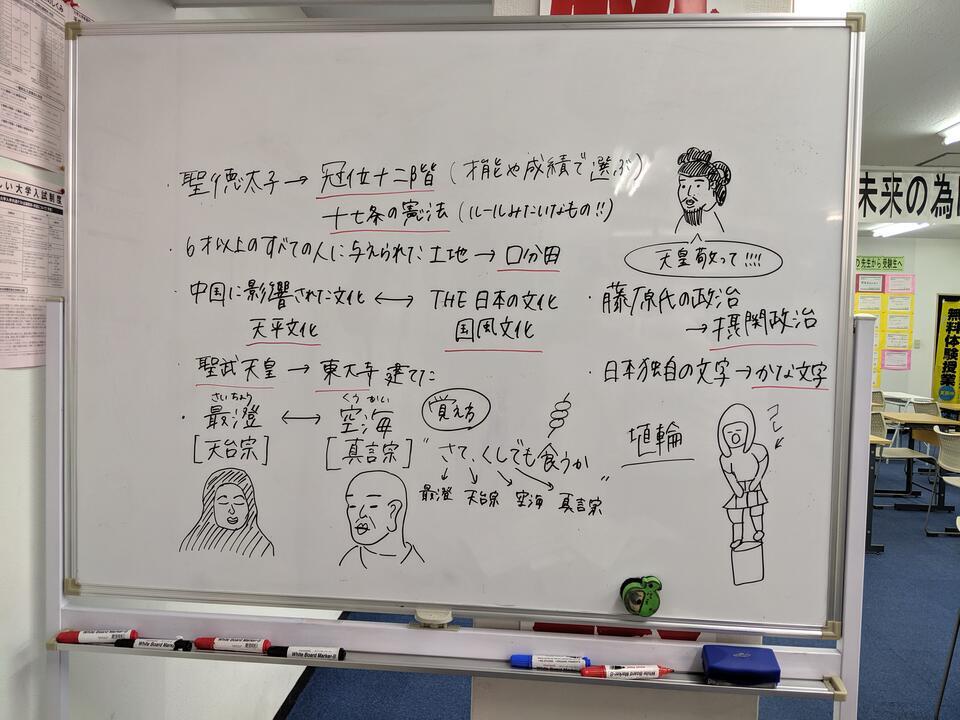 ・聖徳太子→冠位十二階(才能や成績で選ぶ)
十七条の憲法(ルールみたいなもの!!)
天皇敬って!!!!
・6才以上のすべての人に与えられた土地→口分田
・中国に影響された文化←→THE日本の文化
天平文化 国風文化
・藤原氏の政治
→摂関政治
・聖武天皇→東大寺建てた
・日本独自の文字→かな文字
さいちょう くうかい
・最澄←→空海
[天台宗] [真言宗]
覚え方
"さて、くしでも食うか"
最澄 天台宗 空海 真言宗
埴輪
コレ
しい大学入試制度
未来の為に
の先生から受験生へ
無料体験授業
White Board Marker
White Board Marker
White Board Marker
White Board Marker